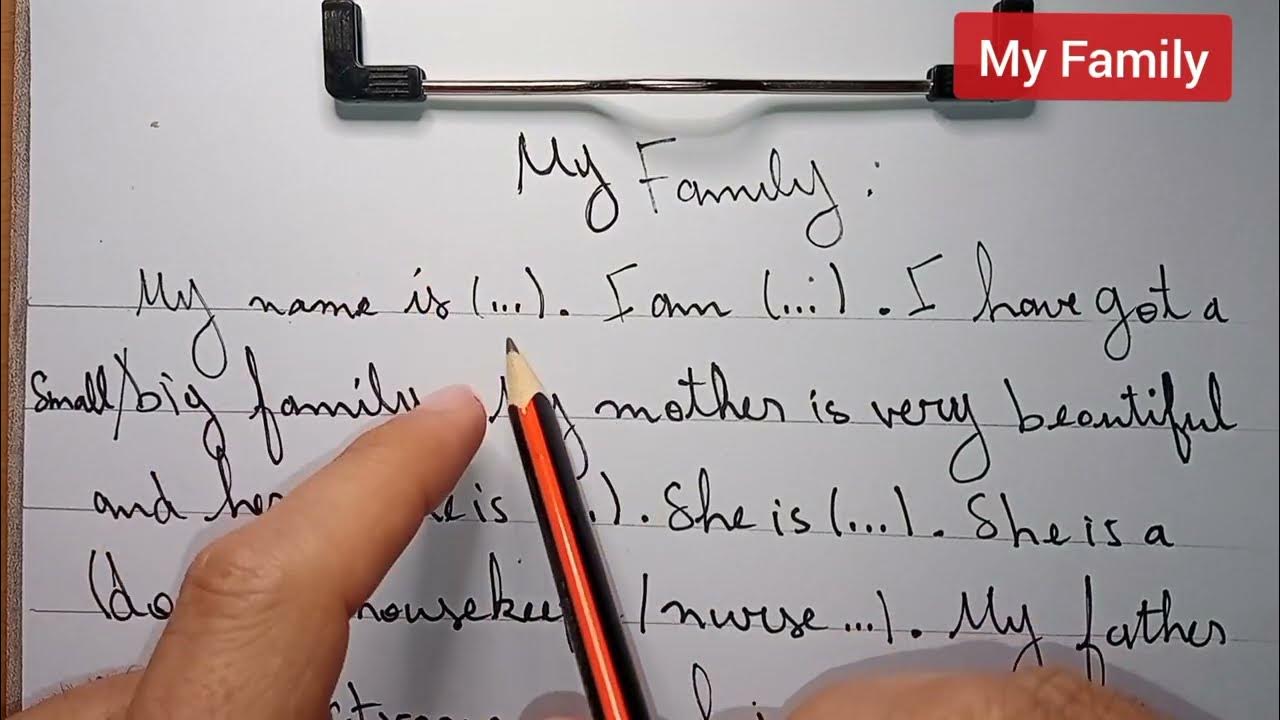 My Family
My Family :
My name is (...). I am (...). I have got a
small/big family. My mother is very beautiful
and her is (...). She is (...). She is a
/ nurse ...). My father